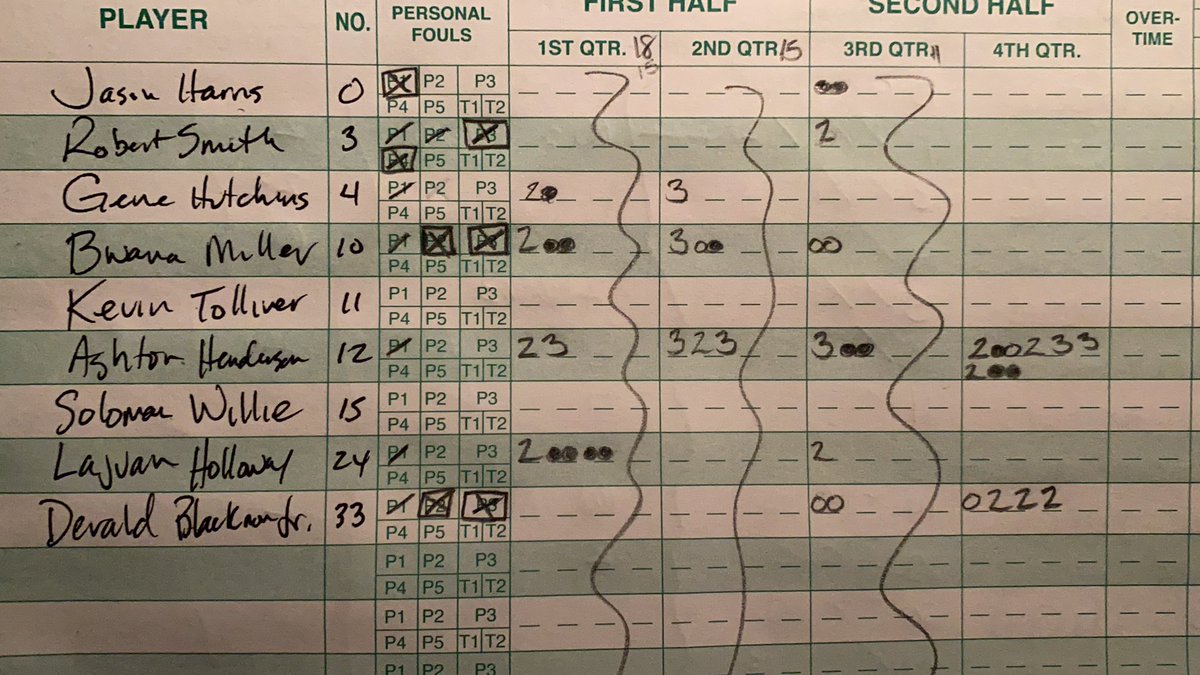 FIRST HALF SECOND HALF
PLAYER NO. PERSONAL FOULS 1ST QTR. 18 2ND QTR. 15 3RD QTR. 11 4TH QTR. OVER-TIME
15
Jason Harris 0 P1 P2 P3
P4 P5 T1 T2
Robert Smith 3 P1 P2 P3 2
P4 P5 T1 T2
Gene Hutchins 4 P1 P2 P3 2 3
P4 P5 T1 T2
Bwana Miller 10 P1 P2 P3 2 3 0 0
P4 P5 T1 T2
Kevin Tolliver 11 P1 P2 P3
P4 P5 T1 T2
Ashton Henderson 12 P1 P2 P3 2 3 3 2 3 3 2 0 0 2 3 3
P4 P5 T1 T2 2
Solomon Willie 15 P1 P2 P3
P4 P5 T1 T2
Lajuan Holloway 24 P1 P2 P3 2 2
P4 P5 T1 T2
Derald Blackmon Jr. 33 P1 P2 P3 0 0 0 2 2 2
P4 P5 T1 T2
P1 P2 P3
P4 P5 T1 T2
P1 P2 P3
P4 P5 T1 T2
P1 P2 P3